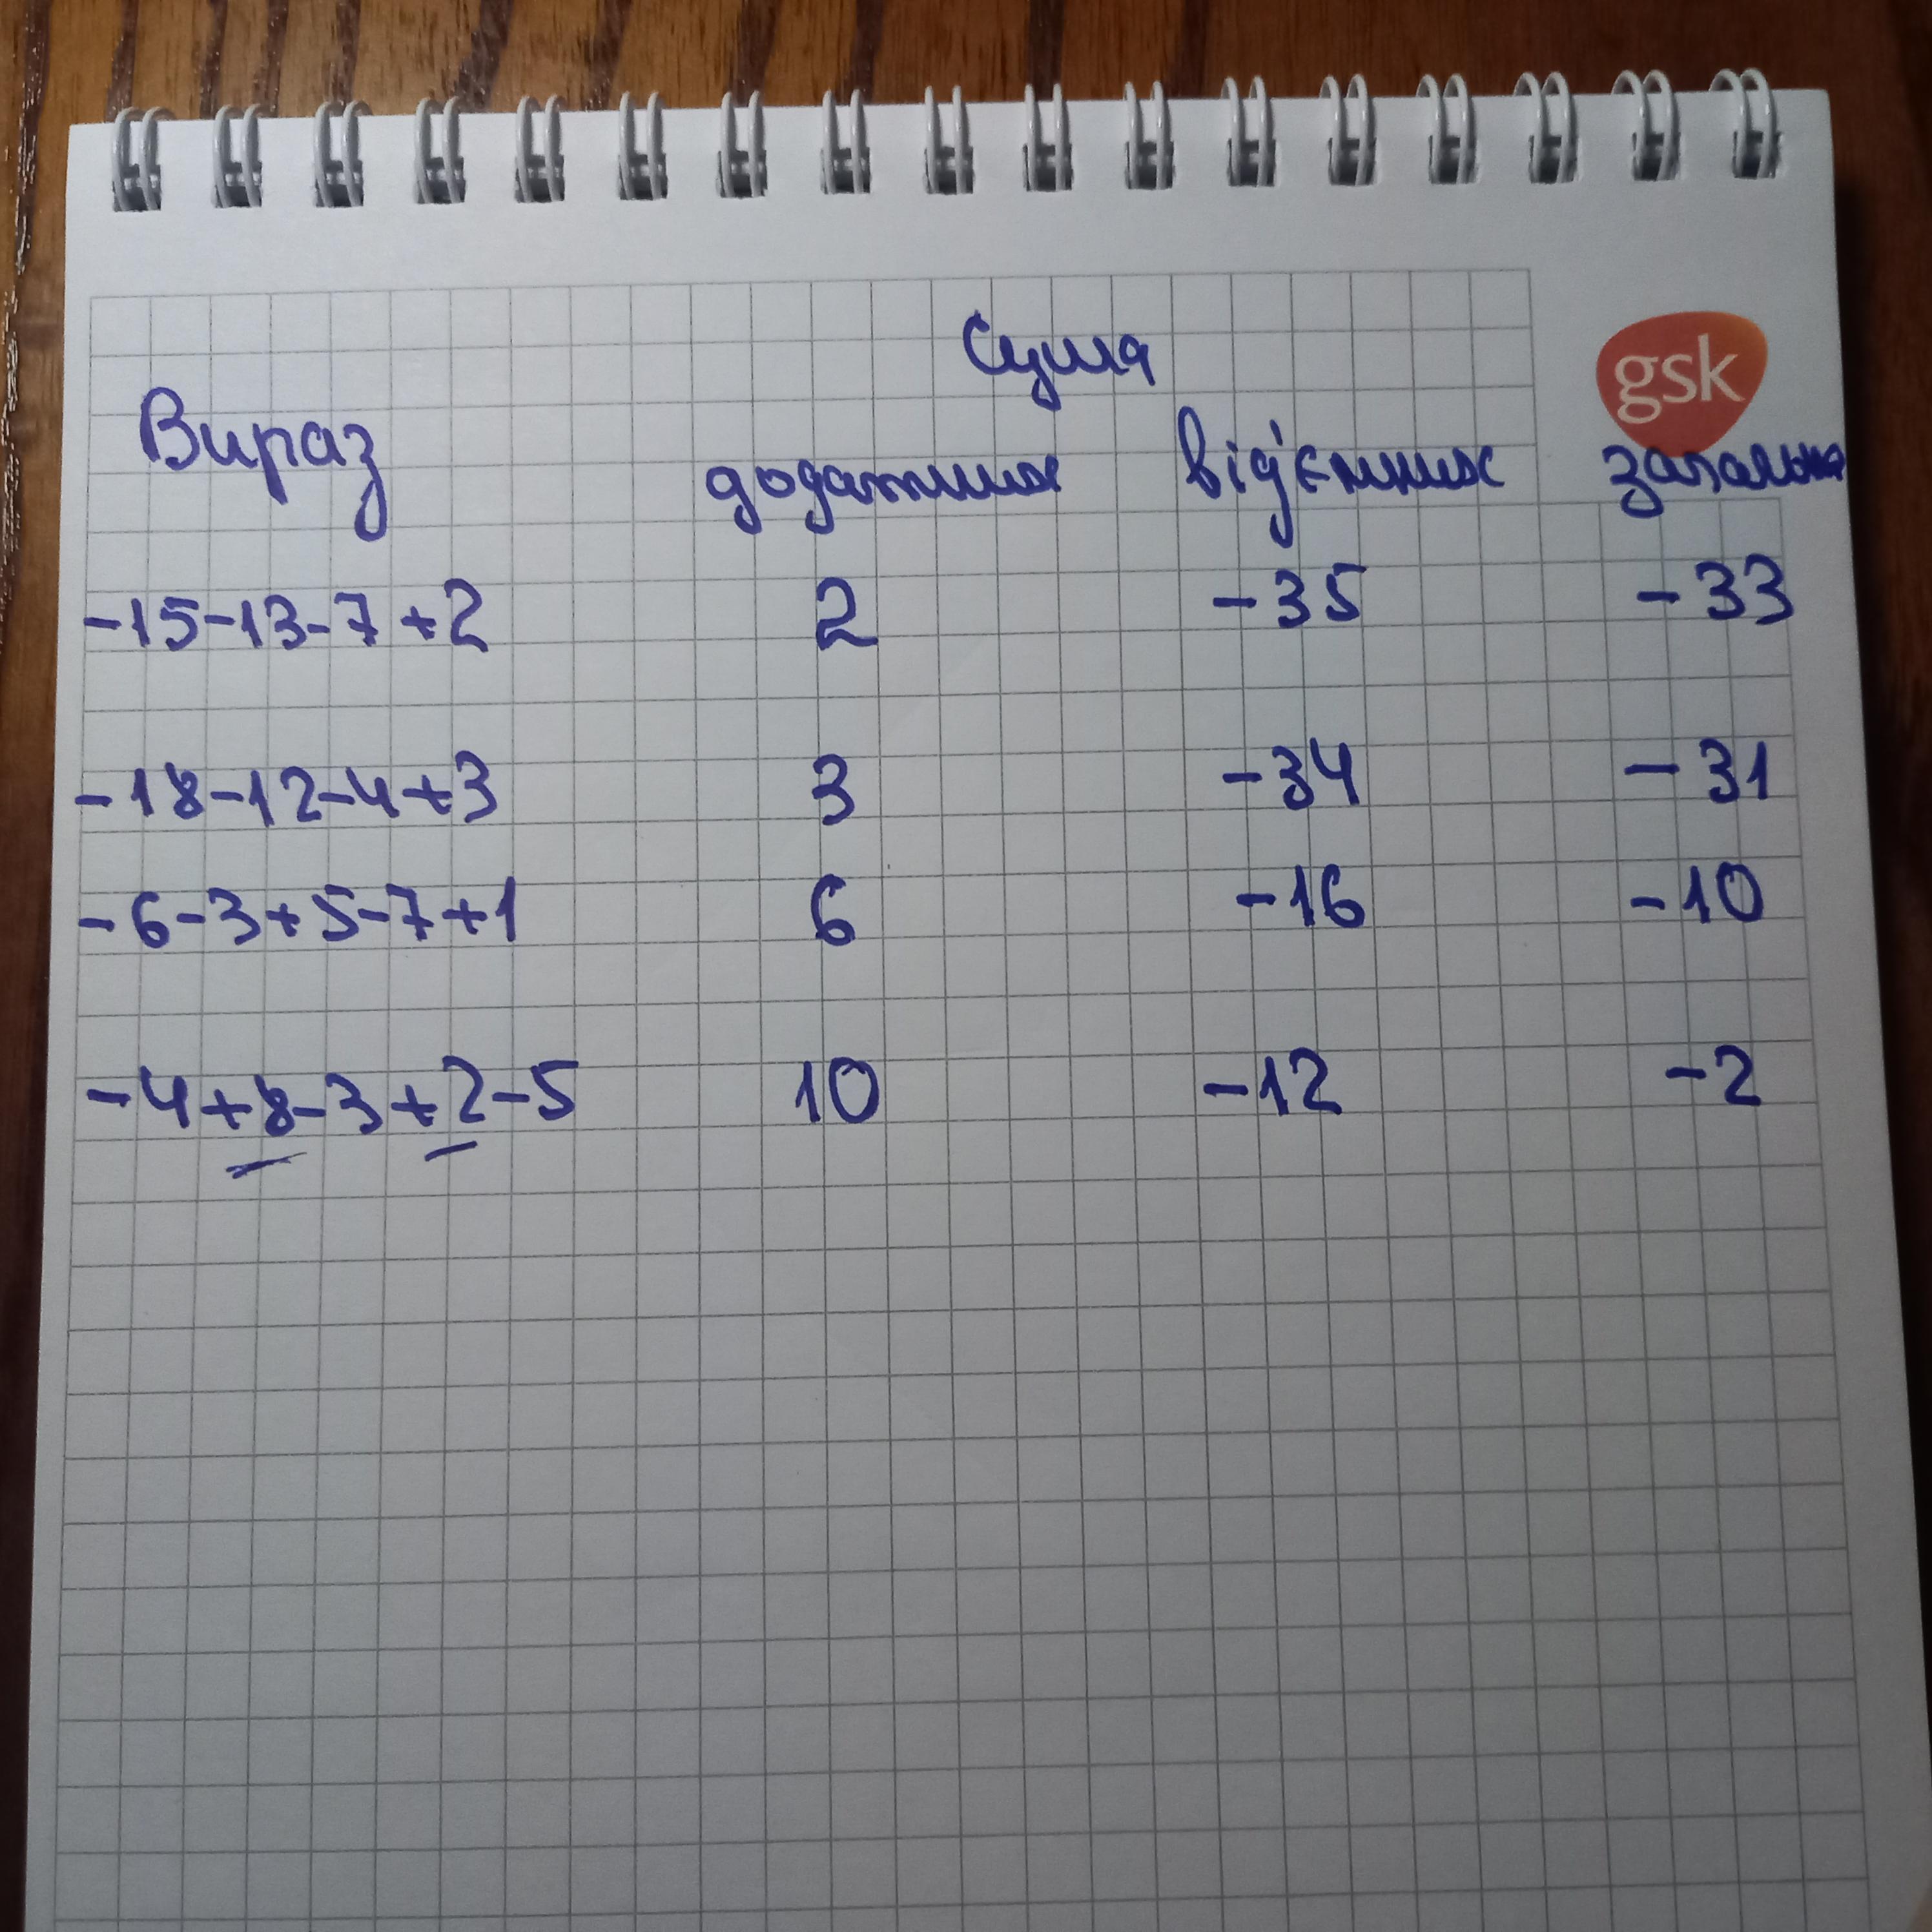 Сума
gsk
Вираз додатних від'ємних загальна
-15-13-7+2 2 -35 -33
-18-12-4+3 3 -34 -31
-6-3+5-7+1 6 -16 -10
-4+8-3+2-5 10 -12 -2